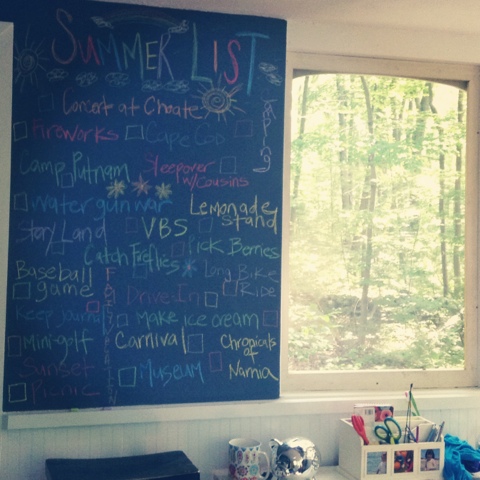 SUMMER LIST
Concert at Choate
Fireworks
Cape Cod
Camp Putnam
Sleepover
w/Cousins
Water gun war
Lemonade
Stand
Story Land
VBS
Pick Berries
Catch Fireflies
Baseball
game
Long Bike
Ride
Drive-In
Keep Journal
Make ice cream
Mini-golf
Carnival
Chronicals
of
Narnia
Sunset
Picnic
Museum